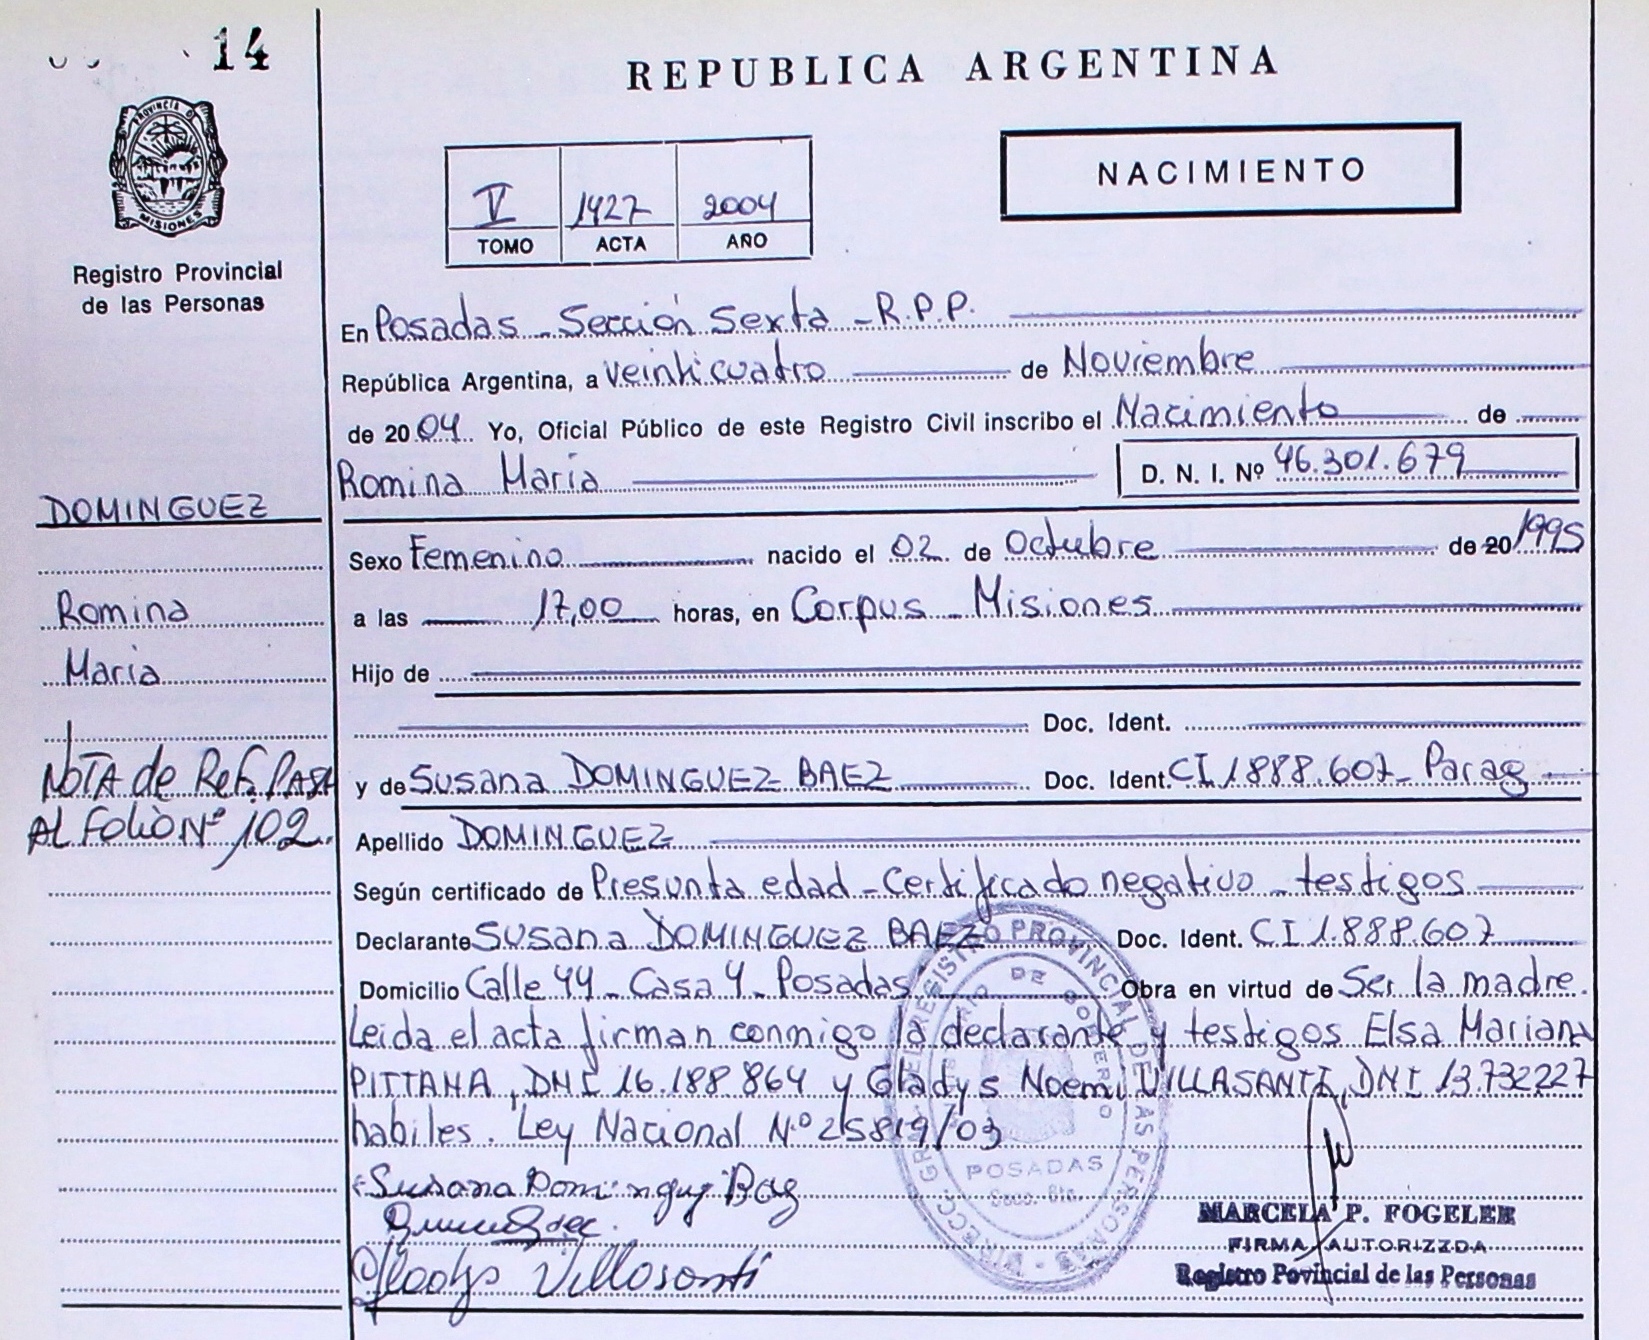 14
REPUBLICA ARGENTINA
PROVINCIA D
MISIONES
Registro Provincial
de las Personas
V 1427 2004
TOMO ACTA AÑO
NACIMIENTO
En Posadas - Sección Sexta - R.P.P.
República Argentina, a veinticuatro de Noviembre
de 2004 Yo, Oficial Público de este Registro Civil inscribo el Nacimiento de
Romina Maria D. N. I. Nº 46.301.679
DOMINGUEZ
Romina
Maria
NOTA de Ref. PASA
AL Folio Nº 102.
Sexo Femenino nacido el 02 de Octubre de 20 1995
a las 17,00 horas, en Corpus - Misiones
Hijo de
Doc. Ident.
y de Susana DOMINGUEZ BAEZ Doc. Ident. CI 1.888.607 - Parag
Apellido DOMINGUEZ
Según certificado de Presunta edad - Certificado negativo - testigos
Declarante Susana DOMINGUEZ BAEZ Doc. Ident. CI 1.888.607
Domicilio Calle 44 - Casa 4 - Posadas Obra en virtud de Ser la madre.
Leida el acta firman conmigo la declarante y testigos Elsa Mariana
PITTANA, DNI 16.188.864 y Gladys Noemi VILLASANTI, DNI 13.732227
habiles. Ley Nacional N.º 25819/03
Susana Dominguez Baez
Gladys Villasanti
POSADAS
Secc. 6ta.
MARCELA P. FOGELER
FIRMA AUTORIZZDA
Registro Povincial de las Personas